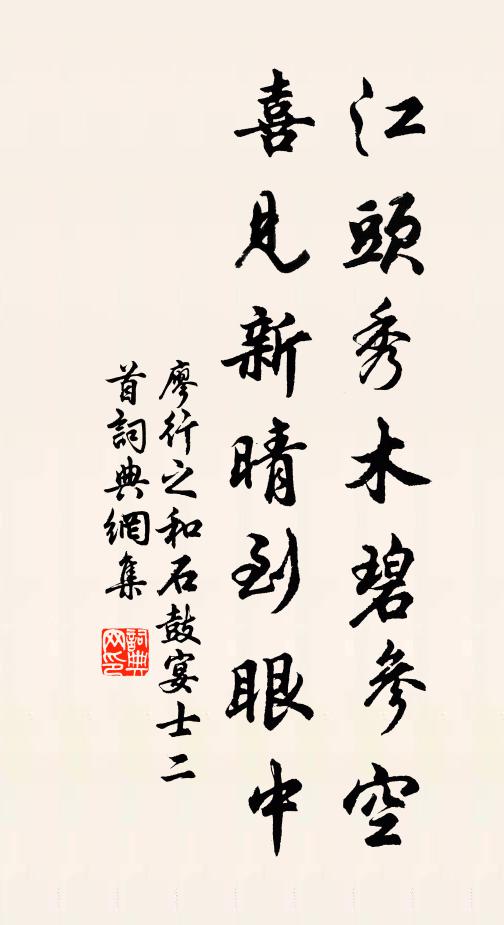 江頭秀木碧參空
喜見新晴到眼中
廖行之和石鼓宴士二
首詞典網集
詞典
网印